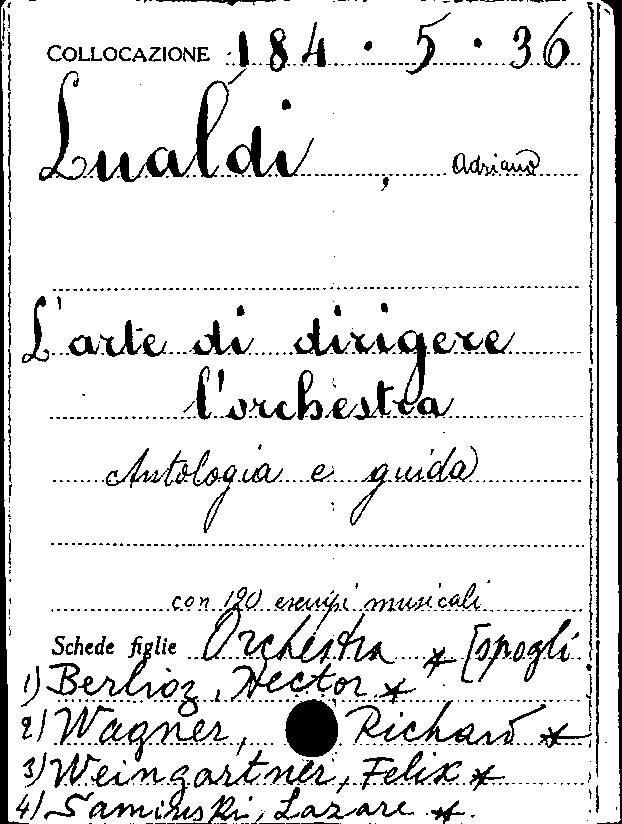 COLLOCAZIONE 184 · 5 · 36
Lualdi, Adriano
L'arte di dirigere
l'orchestra
Antologia e guida
con 120 esempi musicali
Schede figlie Orchestra * [spogli
1) Berlioz, Hector *
2) Wagner, Richard *
3) Weingartner, Felix *
4) Saminski, Lazare *.